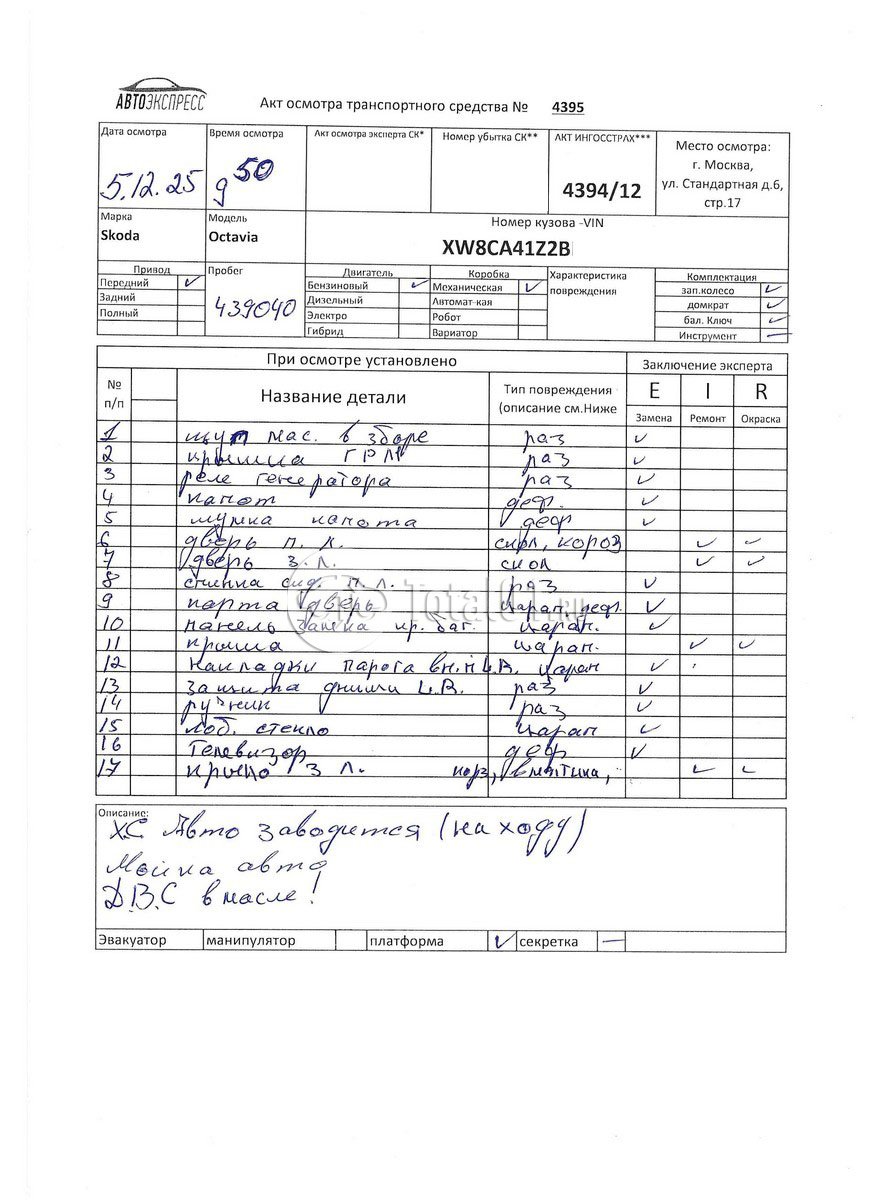 АВТОЭКСПРЕСС
Акт осмотра транспортного средства № 4395
Дата осмотра Время осмотра Акт осмотра эксперта СК* Номер убытка СК** АКТ ИНГОССТРАХ*** Место осмотра:
г. Москва,
5.12.25 9 50 4394/12 ул. Стандартная д.6,
стр.17
Марка Модель Номер кузова -VIN
Skoda Octavia XW8CA41Z2B
Привод Пробег Двигатель Коробка Характеристика Комплектация
Передний ✓ Бензиновый ✓ Механическая ✓ повреждения зап.колесо ✓
Задний 439040 Дизельный Автомат-кая домкрат ✓
Полный Электро Робот бал. Ключ ✓
Гибрид Вариатор Инструмент —
При осмотре установлено Заключение эксперта
№ п/п Название детали Тип повреждения (описание см.Ниже E I R
Замена Ремонт Окраска
1 щуп мас. в зборе раз ✓
2 крышка ГРМ раз ✓
3 реле генератора раз ✓
4 капот деф. ✓
5 капота деф ✓
6 дверь п. л. скол, короз ✓ ✓
7 дверь з. л. скол ✓ ✓
8 спинка сид. п. л. раз ✓
9 дверь царап. деф. ✓
10 панель замка кр. баг. царап. ✓
11 крыша царап. ✓ ✓
12 накладки парога вн. царап ✓
13 защита днища раз ✓
14 раз ✓
15 лоб. стекло царап ✓
16 телевизор деф ✓
17 крыло з л. кор, вмятина, ✓ ✓
Описание:
ХС Авто заводится (на ходу)
Мойка авто
Д.В.С в масле!
Эвакуатор манипулятор платформа ✓ секретка —
Total01.RU